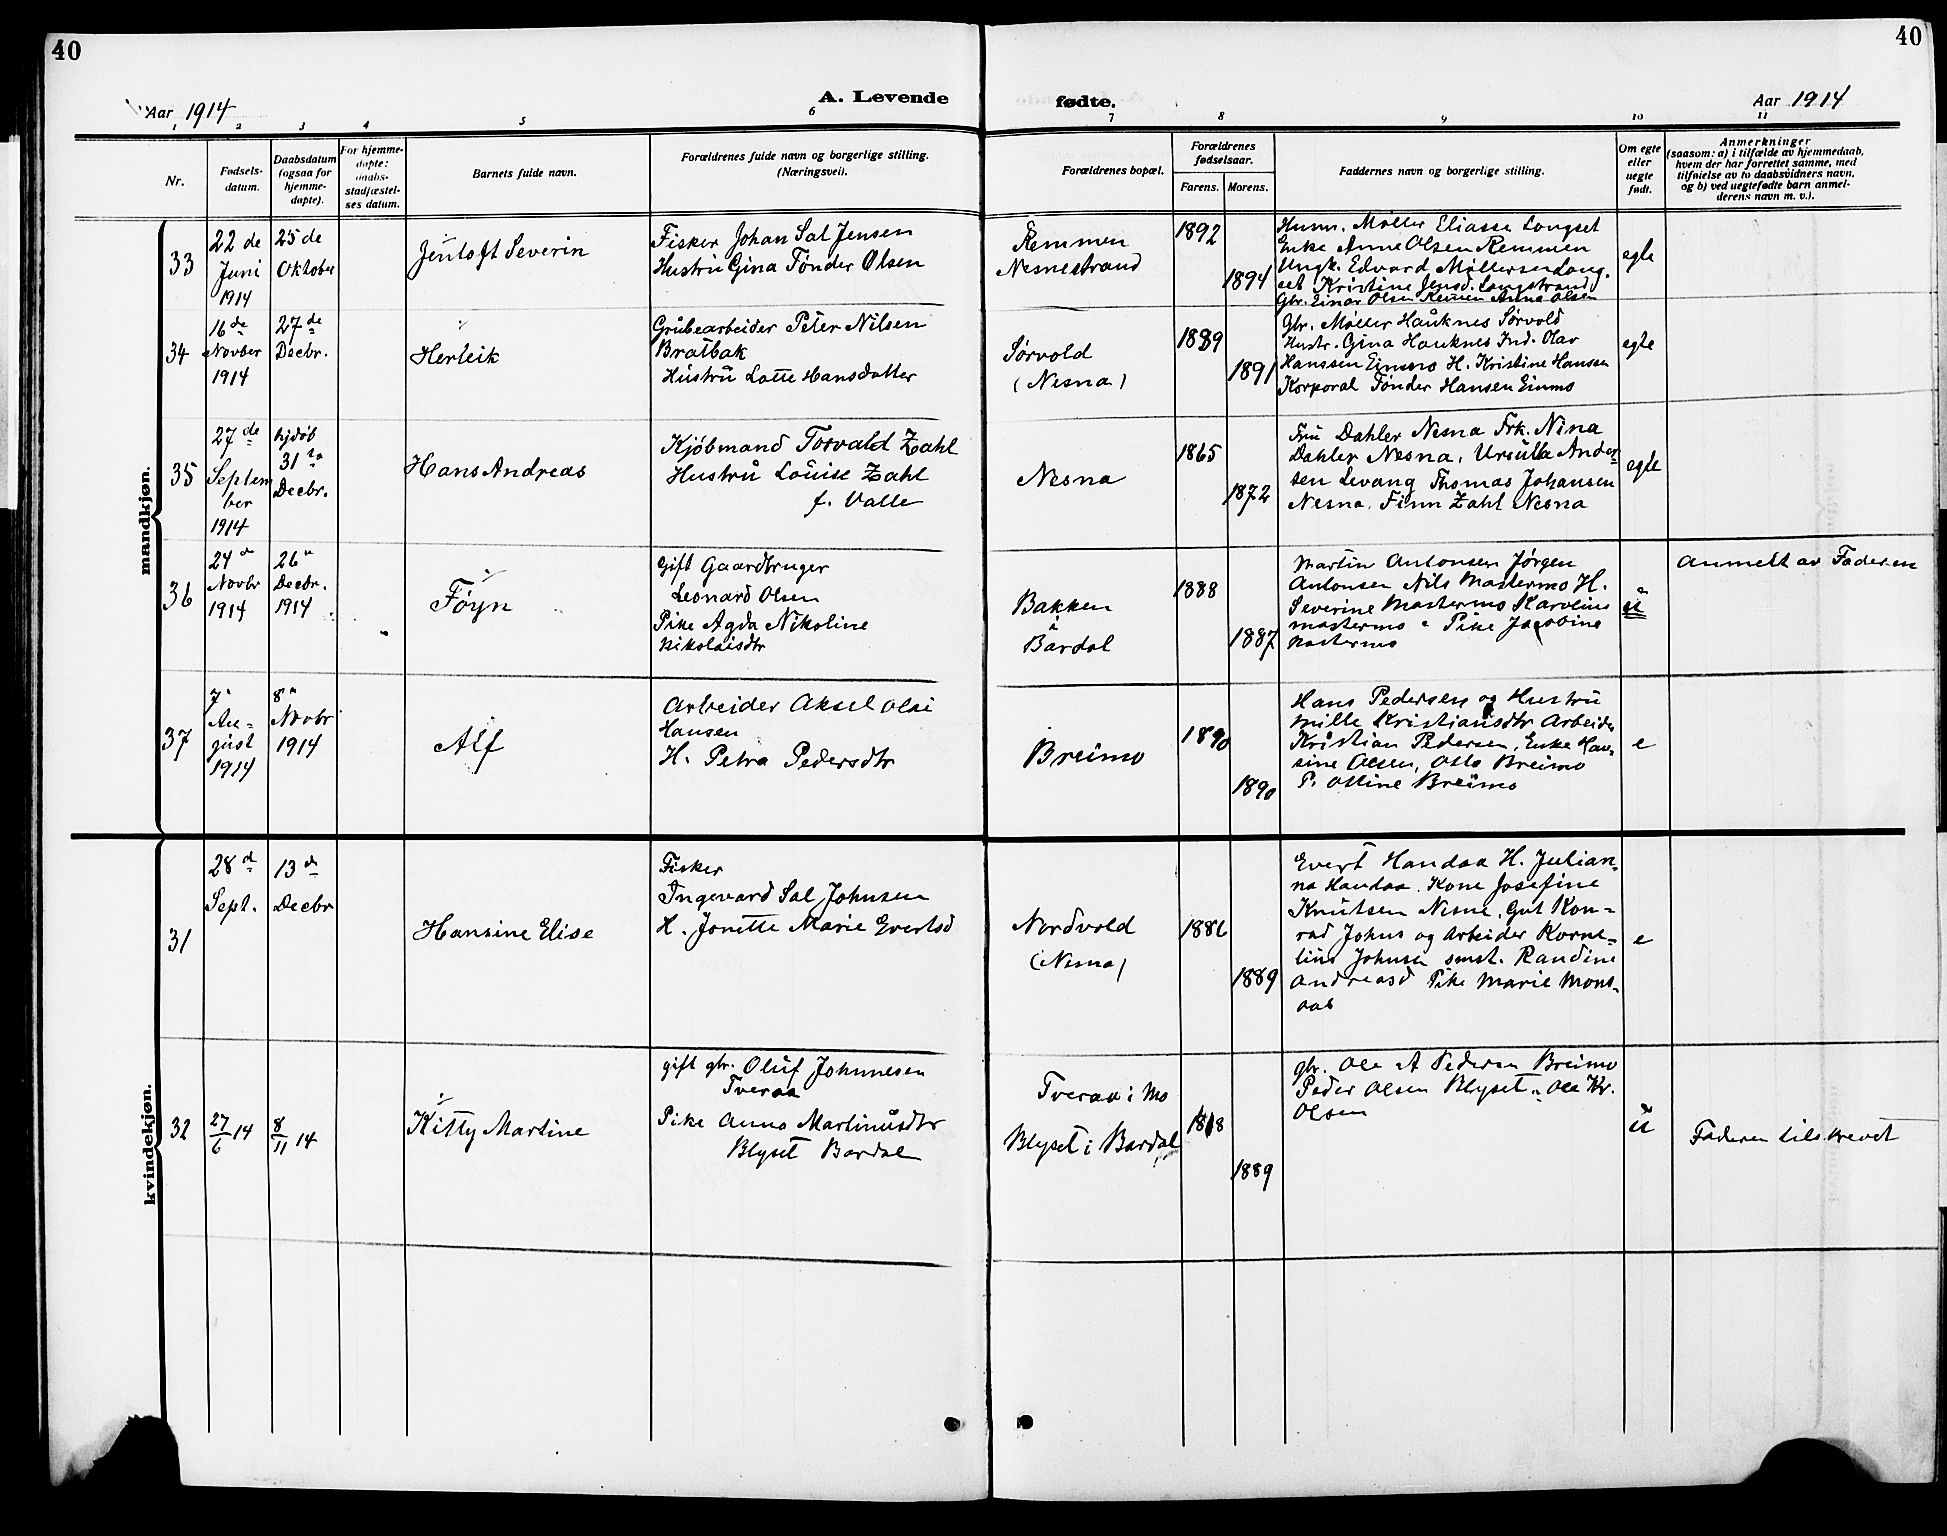 40
40
Aar 1914
A. Levende
fødte.
Aar 1914
1 2 3 4 5 6 7 8 9 10 11
Nr.
Fødsels-
datum.
Daabsdatum
(ogsaa for
hjemme-
døpte).
For hjemme-
døpte:
daabs-
stadfæstel-
ses datum.
Barnets fulde navn.
Forældrenes fulde navn og borgerlige stilling.
(Næringsvei).
Forældrenes bopæl.
Forældrenes
fødselsaar.
Farens. Morens.
Faddernes navn og borgerlige stilling.
Om egte
eller
uegte
født.
Anmerkninger
(saasom: a) i tilfælde av hjemmedaab,
hvem der har forrettet samme, med
tilføielse av to daabsvidners navn,
og b) ved uegtefødte barn anmel-
derens navn m. v.).
mandkjøn.
33
22 de
Juni
1914
25 de
Oktober
Jentoft Severin
Fisker Johan Sal Jensen
Hustru Gina Tønder Olsen
Remmen
Nesnestrand
1892
1894
Husm. Møller Eliasse Longset
Enke Anne Olsen Remmen
Ungk. Edvard Møllersen Long.
set Kristine Jensd. Langstrand
Gbr. Einar Olsen Remen Anna Olsen
egte
34
16 de
Novber
1914
27 de
Decbr.
Herleik
Grubearbeider Peter Nilsen
Bratbak
Hustru Lotte Hansdatter
Sørvold
(Nesna)
1889
1891
Gbr. Møller Hauknes Sørvold
Hustr. Gina Hauknes Ind. Olav
Hanssen Einmo H. Kristine Hansen
Korporal Tønder Hansen Einmo
egte
35
27 de
Septem
ber
1914
hjdøb
31 te
Decbr.
Hans Andreas
Kjøbmand Torvald Zahl
Hustru Louise Zahl
f. Valle
Nesna
1865
1872
Fru Dahler Nesna Frk. Nina
Dahler Nesna, Ursulla Ander-
sen Levang Thomas Johansen
Nesna, Finn Zahl Nesna
egte
36
24 d
Novbr
1914
26 d
Decbr.
1914
Føyn
Gift Gaardbruger
Leonard Olsen
Pike Agda Nikoline
Nikolaisdtr
Bakken
i
Bardal
1888
1887
Martin Antonsen Jørgen
Antonsen Nils Mastermo H.
Severine Mastermo Karoline
Mastermo Pike Jacobine
Mastermo
u
Anmelt av Faderen
37
7 d
Au-
gust
1914
8 d
Novbr
1914
Alf
Arbeider Aksel Olai
Hansen
H. Petra Pedersdtr
Breimo
1890
1890
Hans Pedersen og Hustru
Mille Kristiansdtr Arbeider
Kristian Pedersen, Enke Han-
sine Olsen, Otto Breimo
P. Ottine Breimo
e
kvindekjøn.
31
28 d
Sept.
13 d
Decbr
Hansine Elise
Fisker
Ingevard Sal Johnsen
H. Jonette Marie Evertsd
Nordvold
(Nesna)
1886
1889
Evert Handaa H. Julian-
na Handaa. Kone Josefine
Knutsen Nesne, Gut Kon-
rad Johns og Arbeider Korne-
lius Johnsen smst. Randine
Andreasd Pike Marie Mons-
aas
e
32
27/6 14
8/11 14
Kitty Martine
gift gbr. Oluf Johnnesen
Tveraa
Pike Anna Martinusdtr
Blyset Bardal
Tveraa i Mo
Blyset i Bardal
1889
gbr. Ole A Pedersen Breimo
Peder Olsen Blyset " Ole Kr.
Olsen
u
Faderen tilskrevet